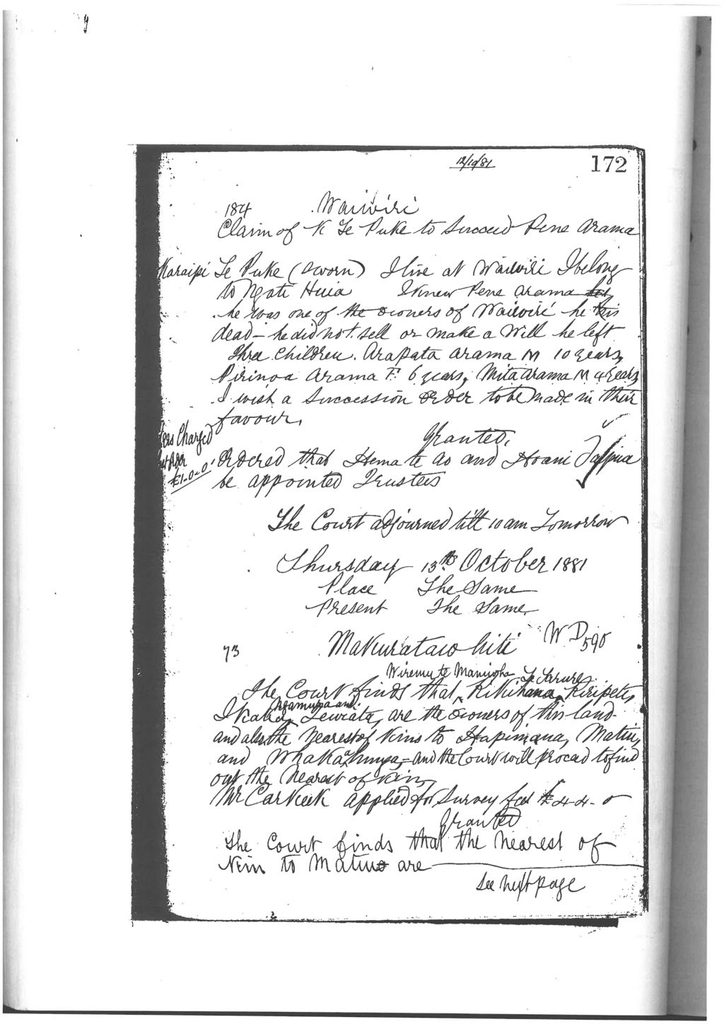 12/10/81
172
184 Waiwiri
Claim of K Te Puke to Succeed Pene Arama
Karaipi Te Puke (Sworn) I live at Waiwiri I belong
to Ngati Huia I knew Pene Arama
he was one of the owners of Waiwiri he is
dead - he did not sell or make a Will he left
three children. Arapata Arama M 10 years,
Pirinoa Arama F. 6 years, Mita Arama M 4 years
I wish a Succession Order to be made in their
favour.
Granted.
Fees Charged
£1-0-0
Ordered that Hema te Ao and Hoani Taipua
be appointed Trustees
The Court adjourned till 10 am Tomorrow
Thursday 13th October 1881
Place The Same
Present The Same
73 Makuratawhiti WD 590
Wiremu te Manuoha
The Court finds that Kikihana Kiripete,
Ngamuka and
Ikaha, Tewiata, are the owners of this land
and also the nearest of kin to Hapimana, Matiu,
and and the Court will proceed to find
out the nearest of kin
Mr Carkeek applied for Survey fees £44-0
Granted
The Court finds that the nearest of
Kin to Matiu are
See next page